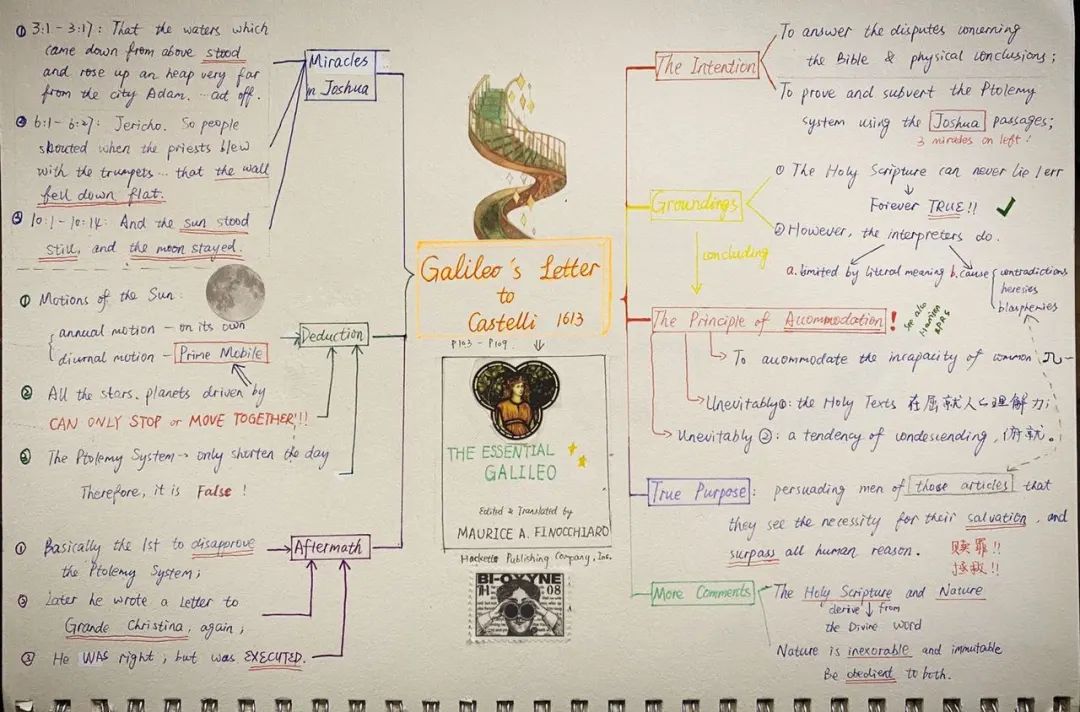 ① 3:1 - 3:17: That the waters which
came down from above stood
and rose up an heap very far
from the city Adam. ... off.
② 6:1 - 6:27: Jericho. So people
shouted when the priests blew
with the trumpets ... that the wall
fell down flat.
③ 10:1 - 10:14: And the sun stood
still, and the moon stayed.
Miracles
in Joshua
① Motions of the Sun:
annual motion - on its own
diurnal motion - Prime Mobile
② All the stars, planets driven by
CAN ONLY STOP or MOVE TOGETHER!!!
③ The Ptolemy System → only shorten the day
Therefore, it is False !
Deduction
① Basically the 1st to disapprove
the Ptolemy System;
② Later he wrote a Letter to
Grande Christina, again;
③ He WAS right; but was EXECUTED.
Aftermath
Galileo's Letter
to
Castelli 1613
P103 - P109.
THE ESSENTIAL
GALILEO
Edited & Translated by
MAURICE A. FINOCCHIARO
Hackette Publishing Company, Inc.
BI-OXYNE
TH 08
The Intention
To answer the disputes concerning
the Bible & physical conclusions;
To prove and subvert the Ptolemy
system using the Joshua passages;
3 miracles on left!
Groundings
① The Holy Scripture can never lie / err
Forever TRUE!!
② However, the interpreters do.
a. limited by literal meaning b. cause
contradictions
heresies
blasphemies
concluding
The Principle of Accommodation!
See also
Harrison
To auommodate the incapacity of common
Unevitably①: the Holy Texts 在屈就人的理解力;
Unevitably②: a tendency of condescending, 俯就。
True Purpose: persuading men of those articles that
they see the necessity for their salvation, and
surpass all human reason.
赎罪!!
拯救!!
More Comments
The Holy Scripture and Nature
derive ↓ from
the Divine word
Nature is inexorable and immutable
Be obedient to both.